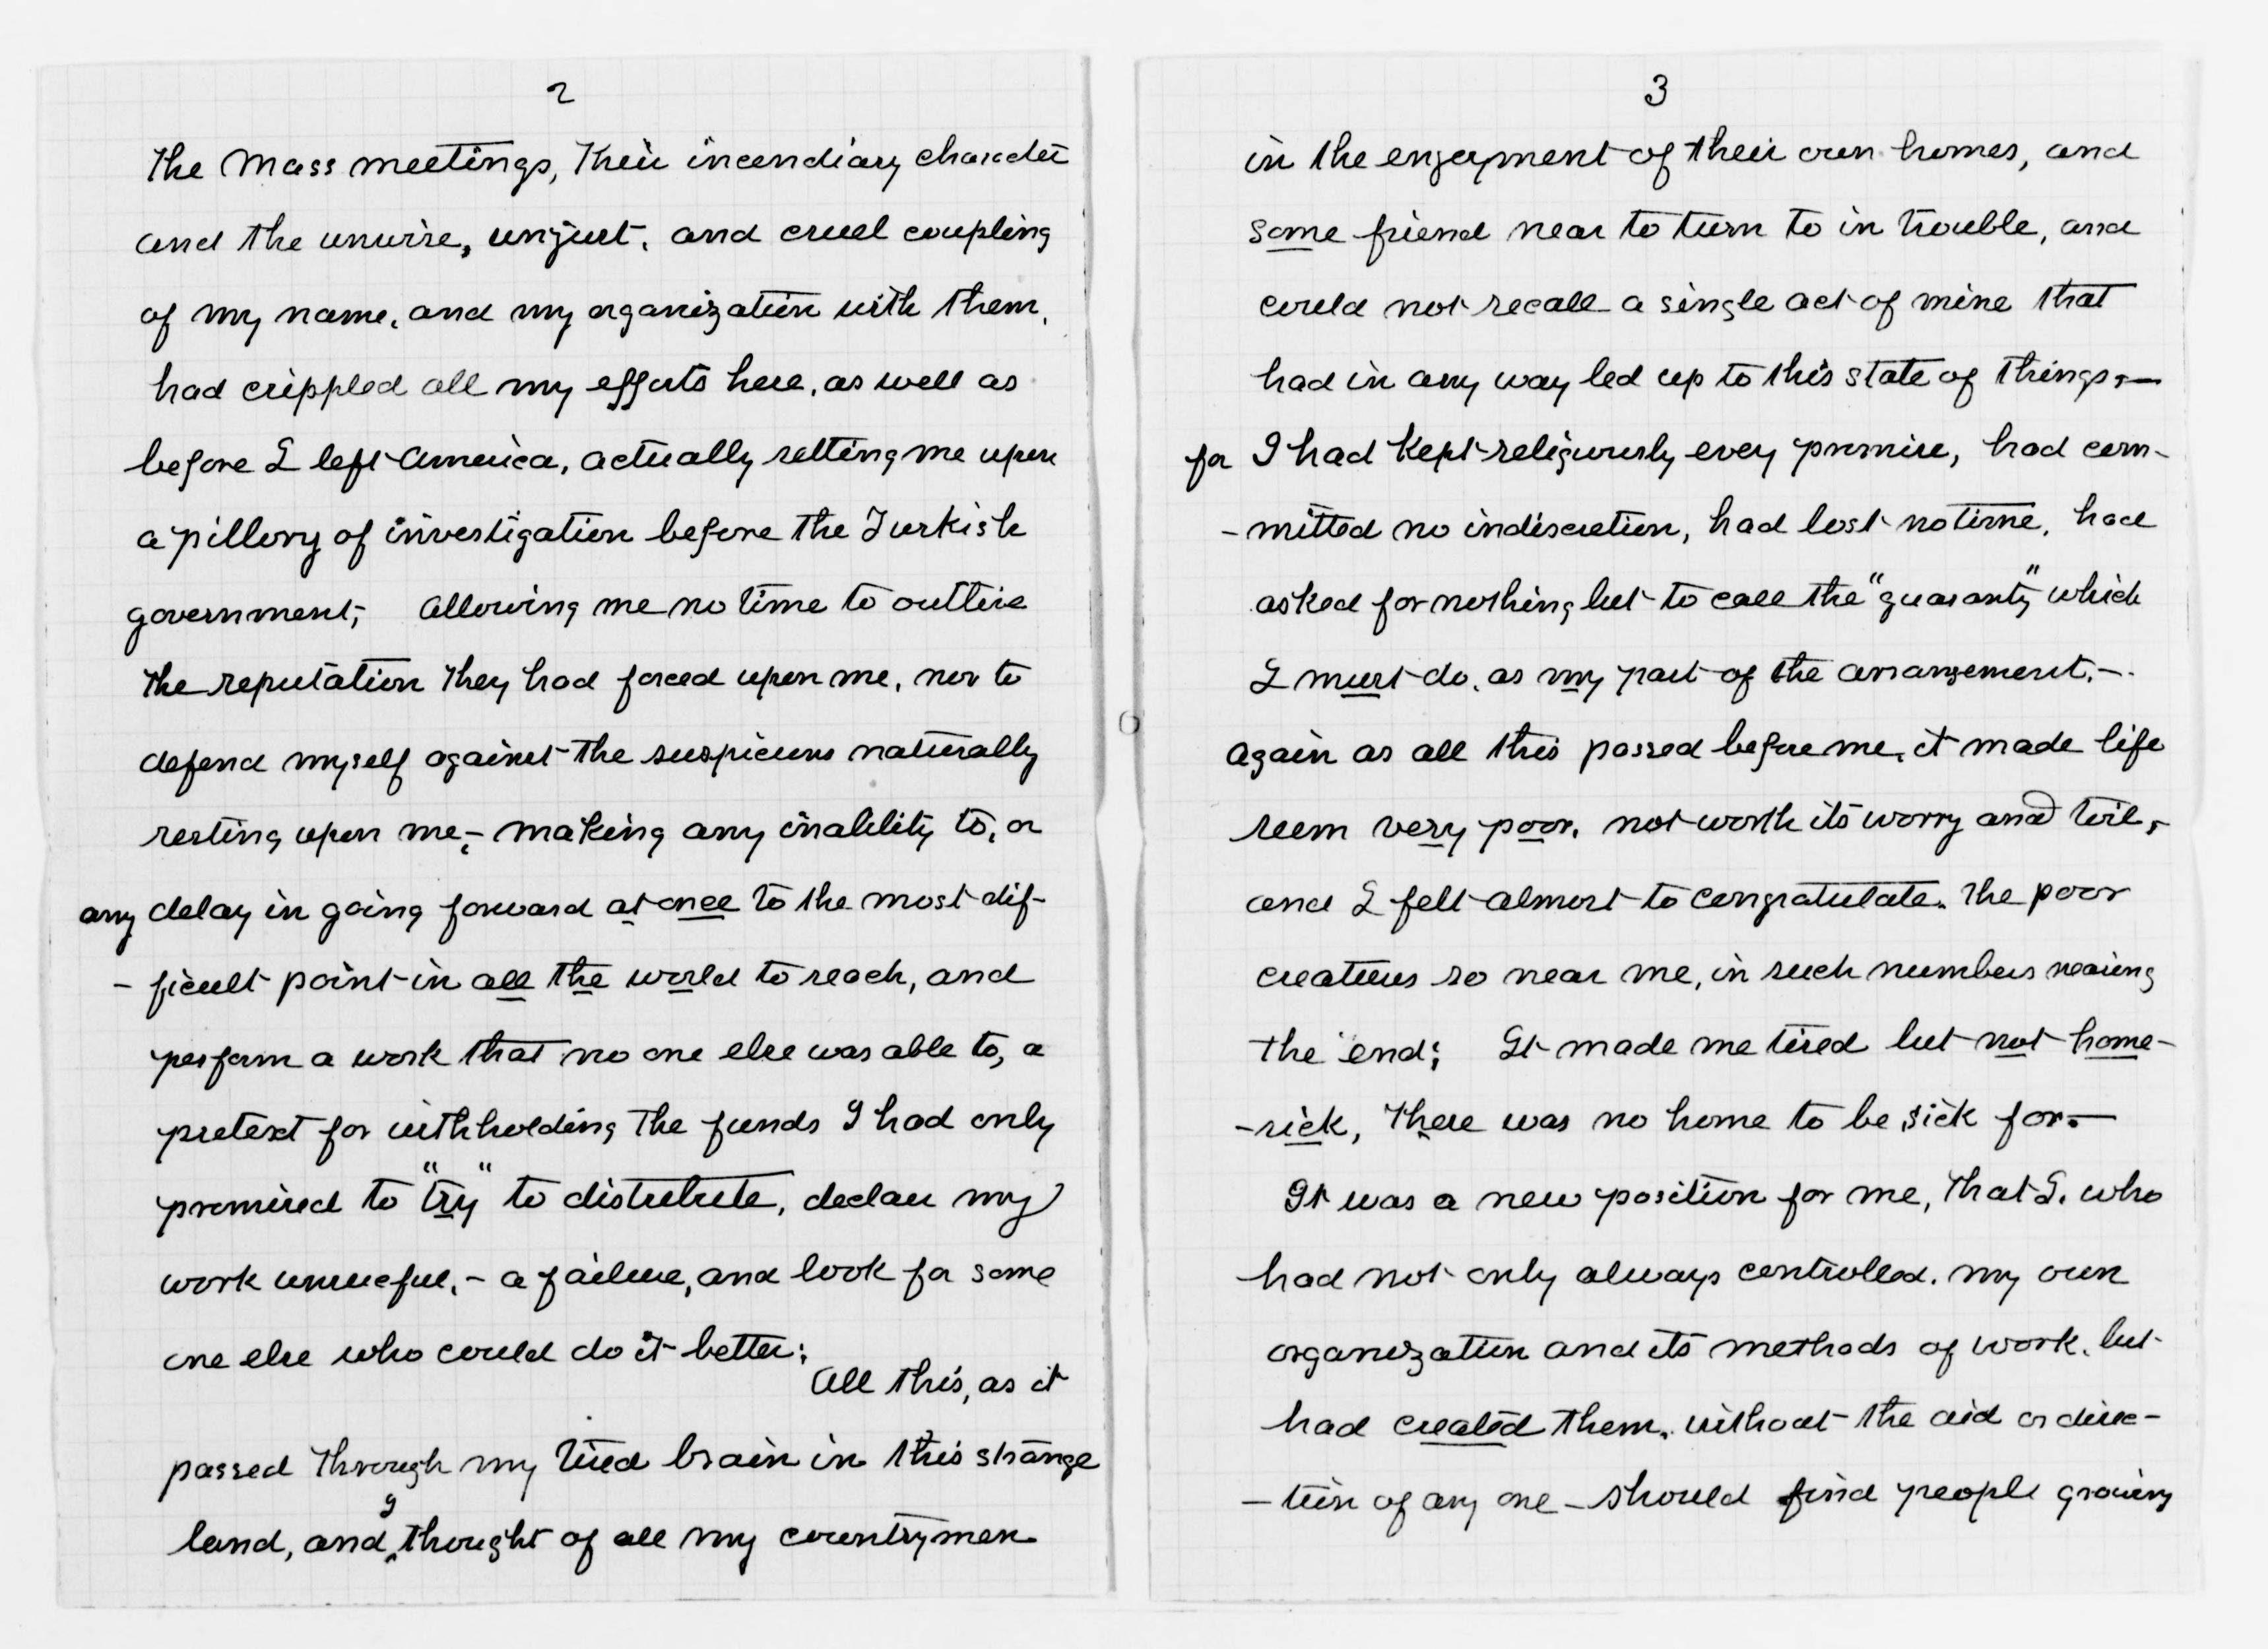 2
The Mass meetings, Their incendiary character
and the unwise, unjust, and cruel coupling
of my name, and my organization with them,
had crippled all my efforts here, as well as
before I left America, actually setting me upon
a pillory of investigation before the Turkish
government; Allowing me no time to outlive
the reputation they had forced upon me, nor to
defend myself against the suspicions naturally
resting upon me,- making any inability to, or
any delay in going forward at once to the most dif-
- ficult point in all the world to reach, and
perform a work that no one else was able to, a
pretext for withholding the funds I had only
promised to "try" to distribute, declare my
work unuseful, - a failure, and look for some
one else who could do it better;
All this, as it
passed through my tired brain in this strange
land, and I thought of all my countrymen
3
in the enjoyment of their own homes, and
some friend near to turn to in trouble, and
could not recall a single act of mine that
had in any way led up to this state of things,—
for I had kept religiously every promise, had com-
- mitted no indiscretion, had lost no time, had
asked for nothing but to call the "guaranty" which
I must do, as my part of the arrangement.-
Again as all this passed before me, it made life
seem very poor, not worth its worry and toil,
and I felt almost to congratulate, the poor
creatures so near me, in such numbers nearing
the end; It made me tired but not home-
-sick, There was no home to be sick for.—
It was a new position for me, That I, who
had not only always controlled, my own
organization and its methods of work, but
had created them, without the aid or direc-
- tion of any one - should find people growing